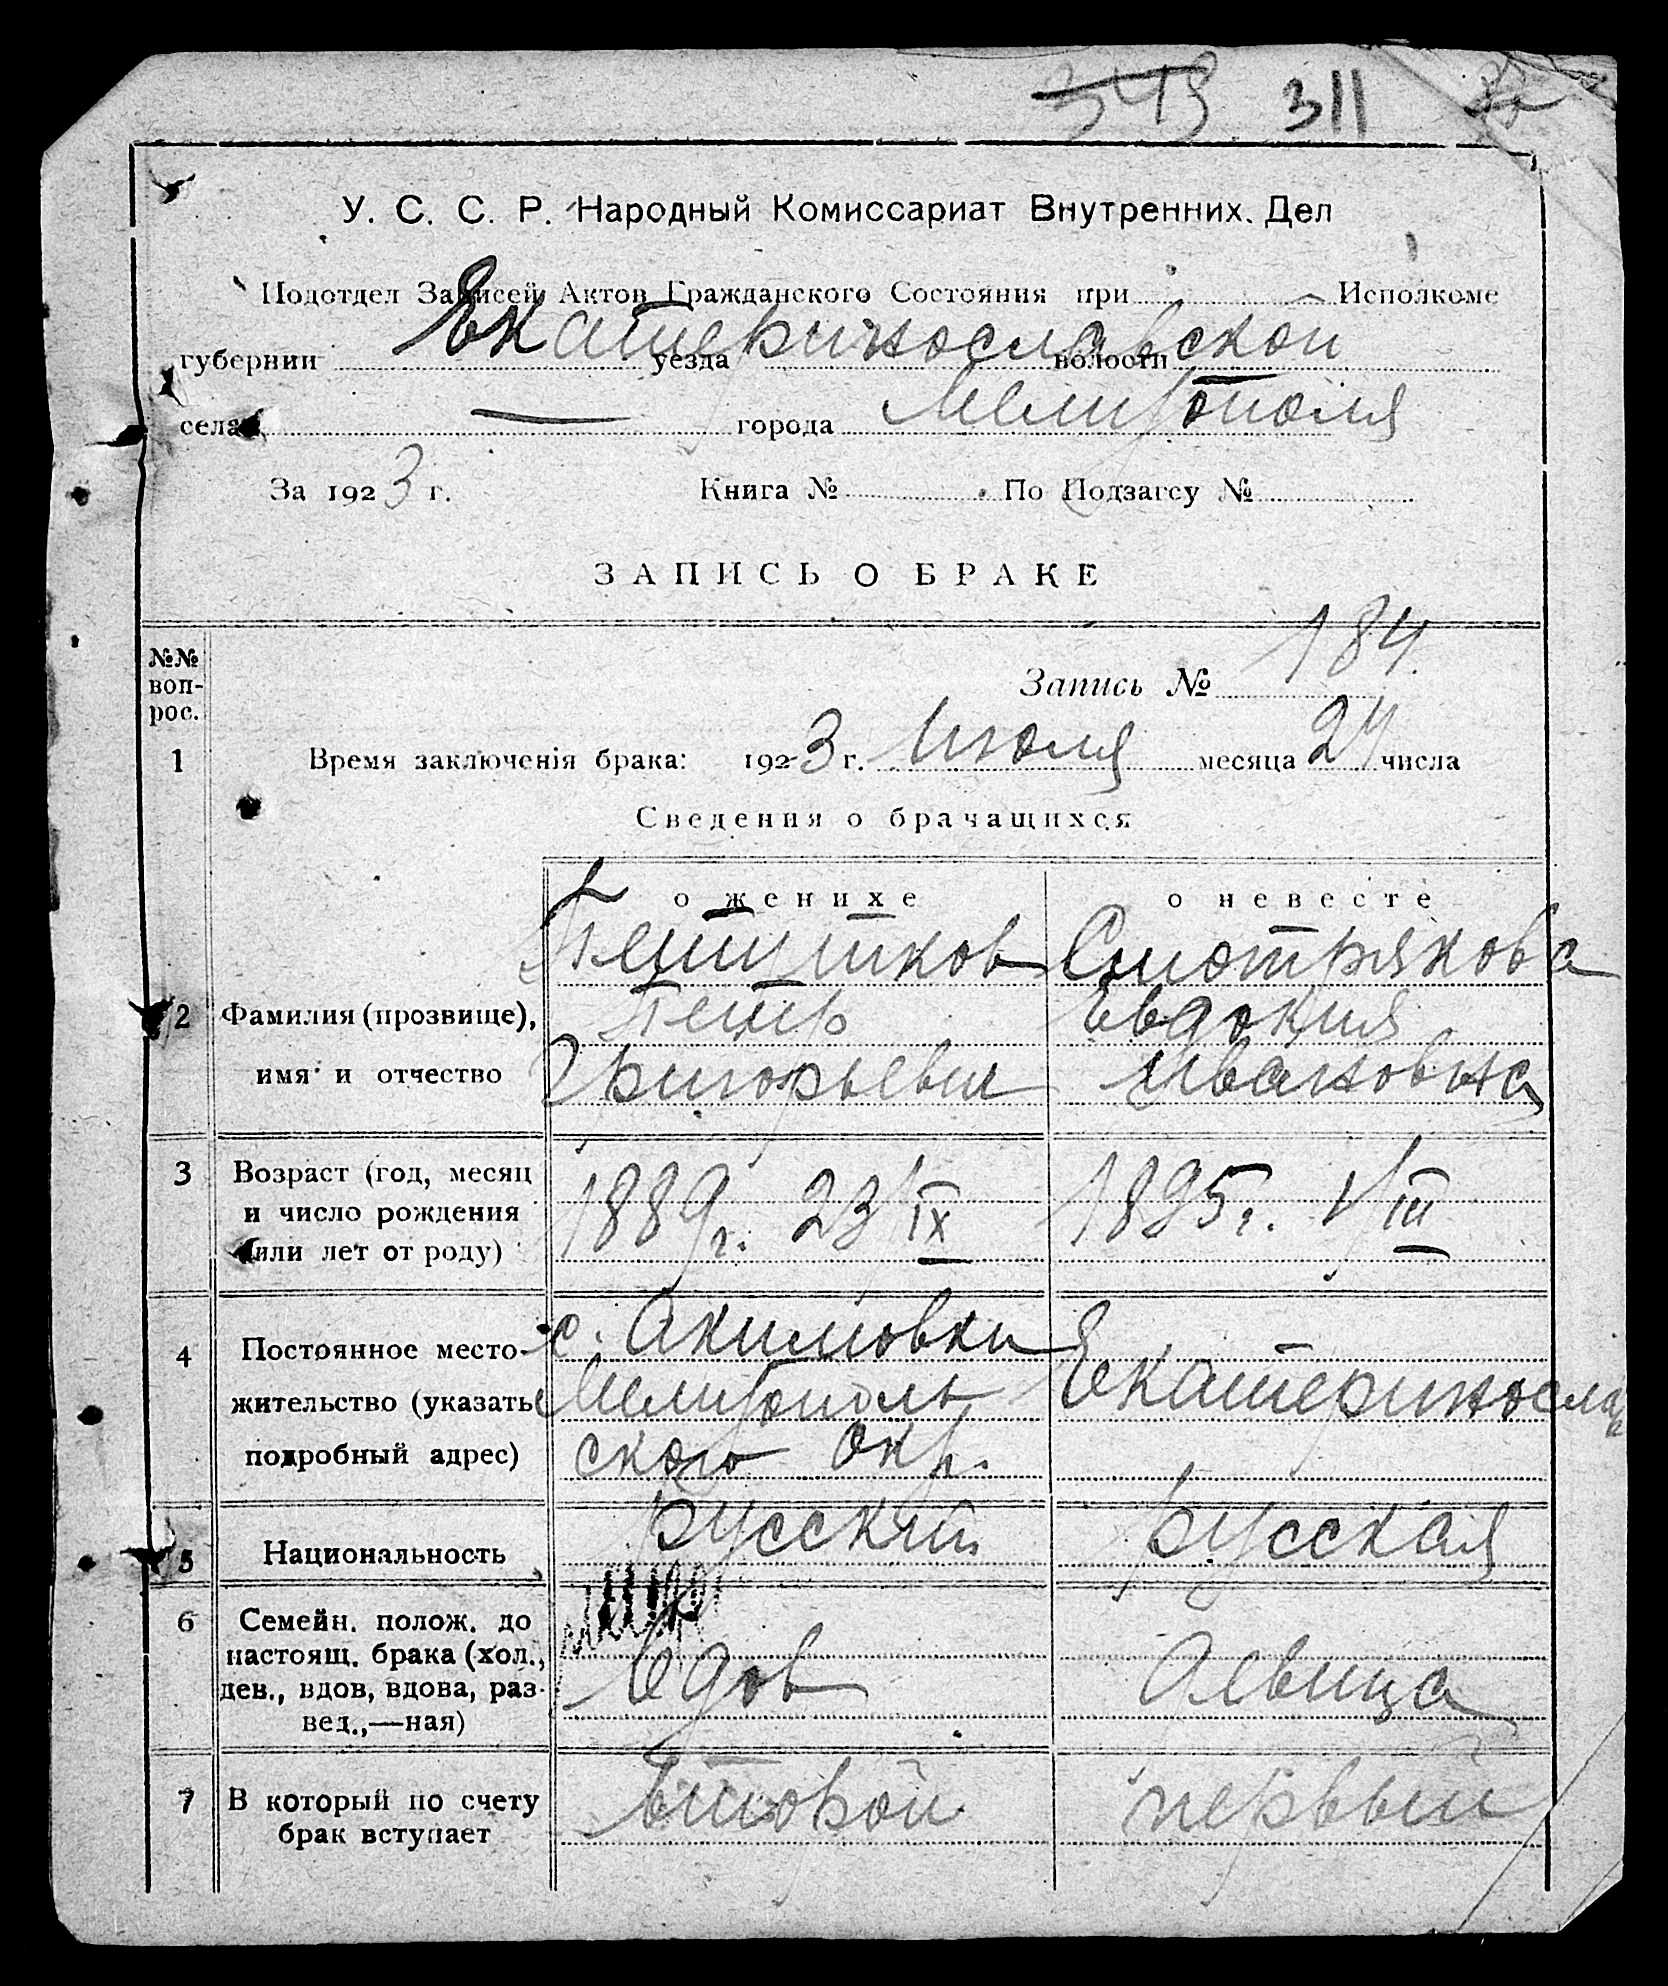 343 311
У. С. С. Р. Народный Комиссариат Внутренних Дел
Подотдел Записей Актов Гражданского Состояния при Исполкоме
губернии Екатеринославской уезда волости
села — города Мелитополя
За 1923 г. Книга № По Подзагсу №
ЗАПИСЬ О БРАКЕ
№№ воп-
рос.
Запись № 184.
1 Время заключенія брака: 1923 г. Июля месяца 24 числа
Сведения о брачащихся
о женихе о невесте
Петушков Смотрякова
2 Фамилия (прозвище), Петр Евдокия
имя и отчество Григорьевич Ивановна
3 Возраст (год, месяц
и число рождения 1889 г. 23/IX 1895 г. 1/III
или лет от роду)
4 Постоянное место- с. Акимовки
жительство (указать Мелитополь Екатеринослав
подробный адрес) ского Окр.
5 Национальность русский русская
6 Семейн. полож. до
настоящ. брака (хол.,
дев., вдов, вдова, раз- Вдов девица
вед.,—ная)
7 В который по счету второй первый
брак вступает